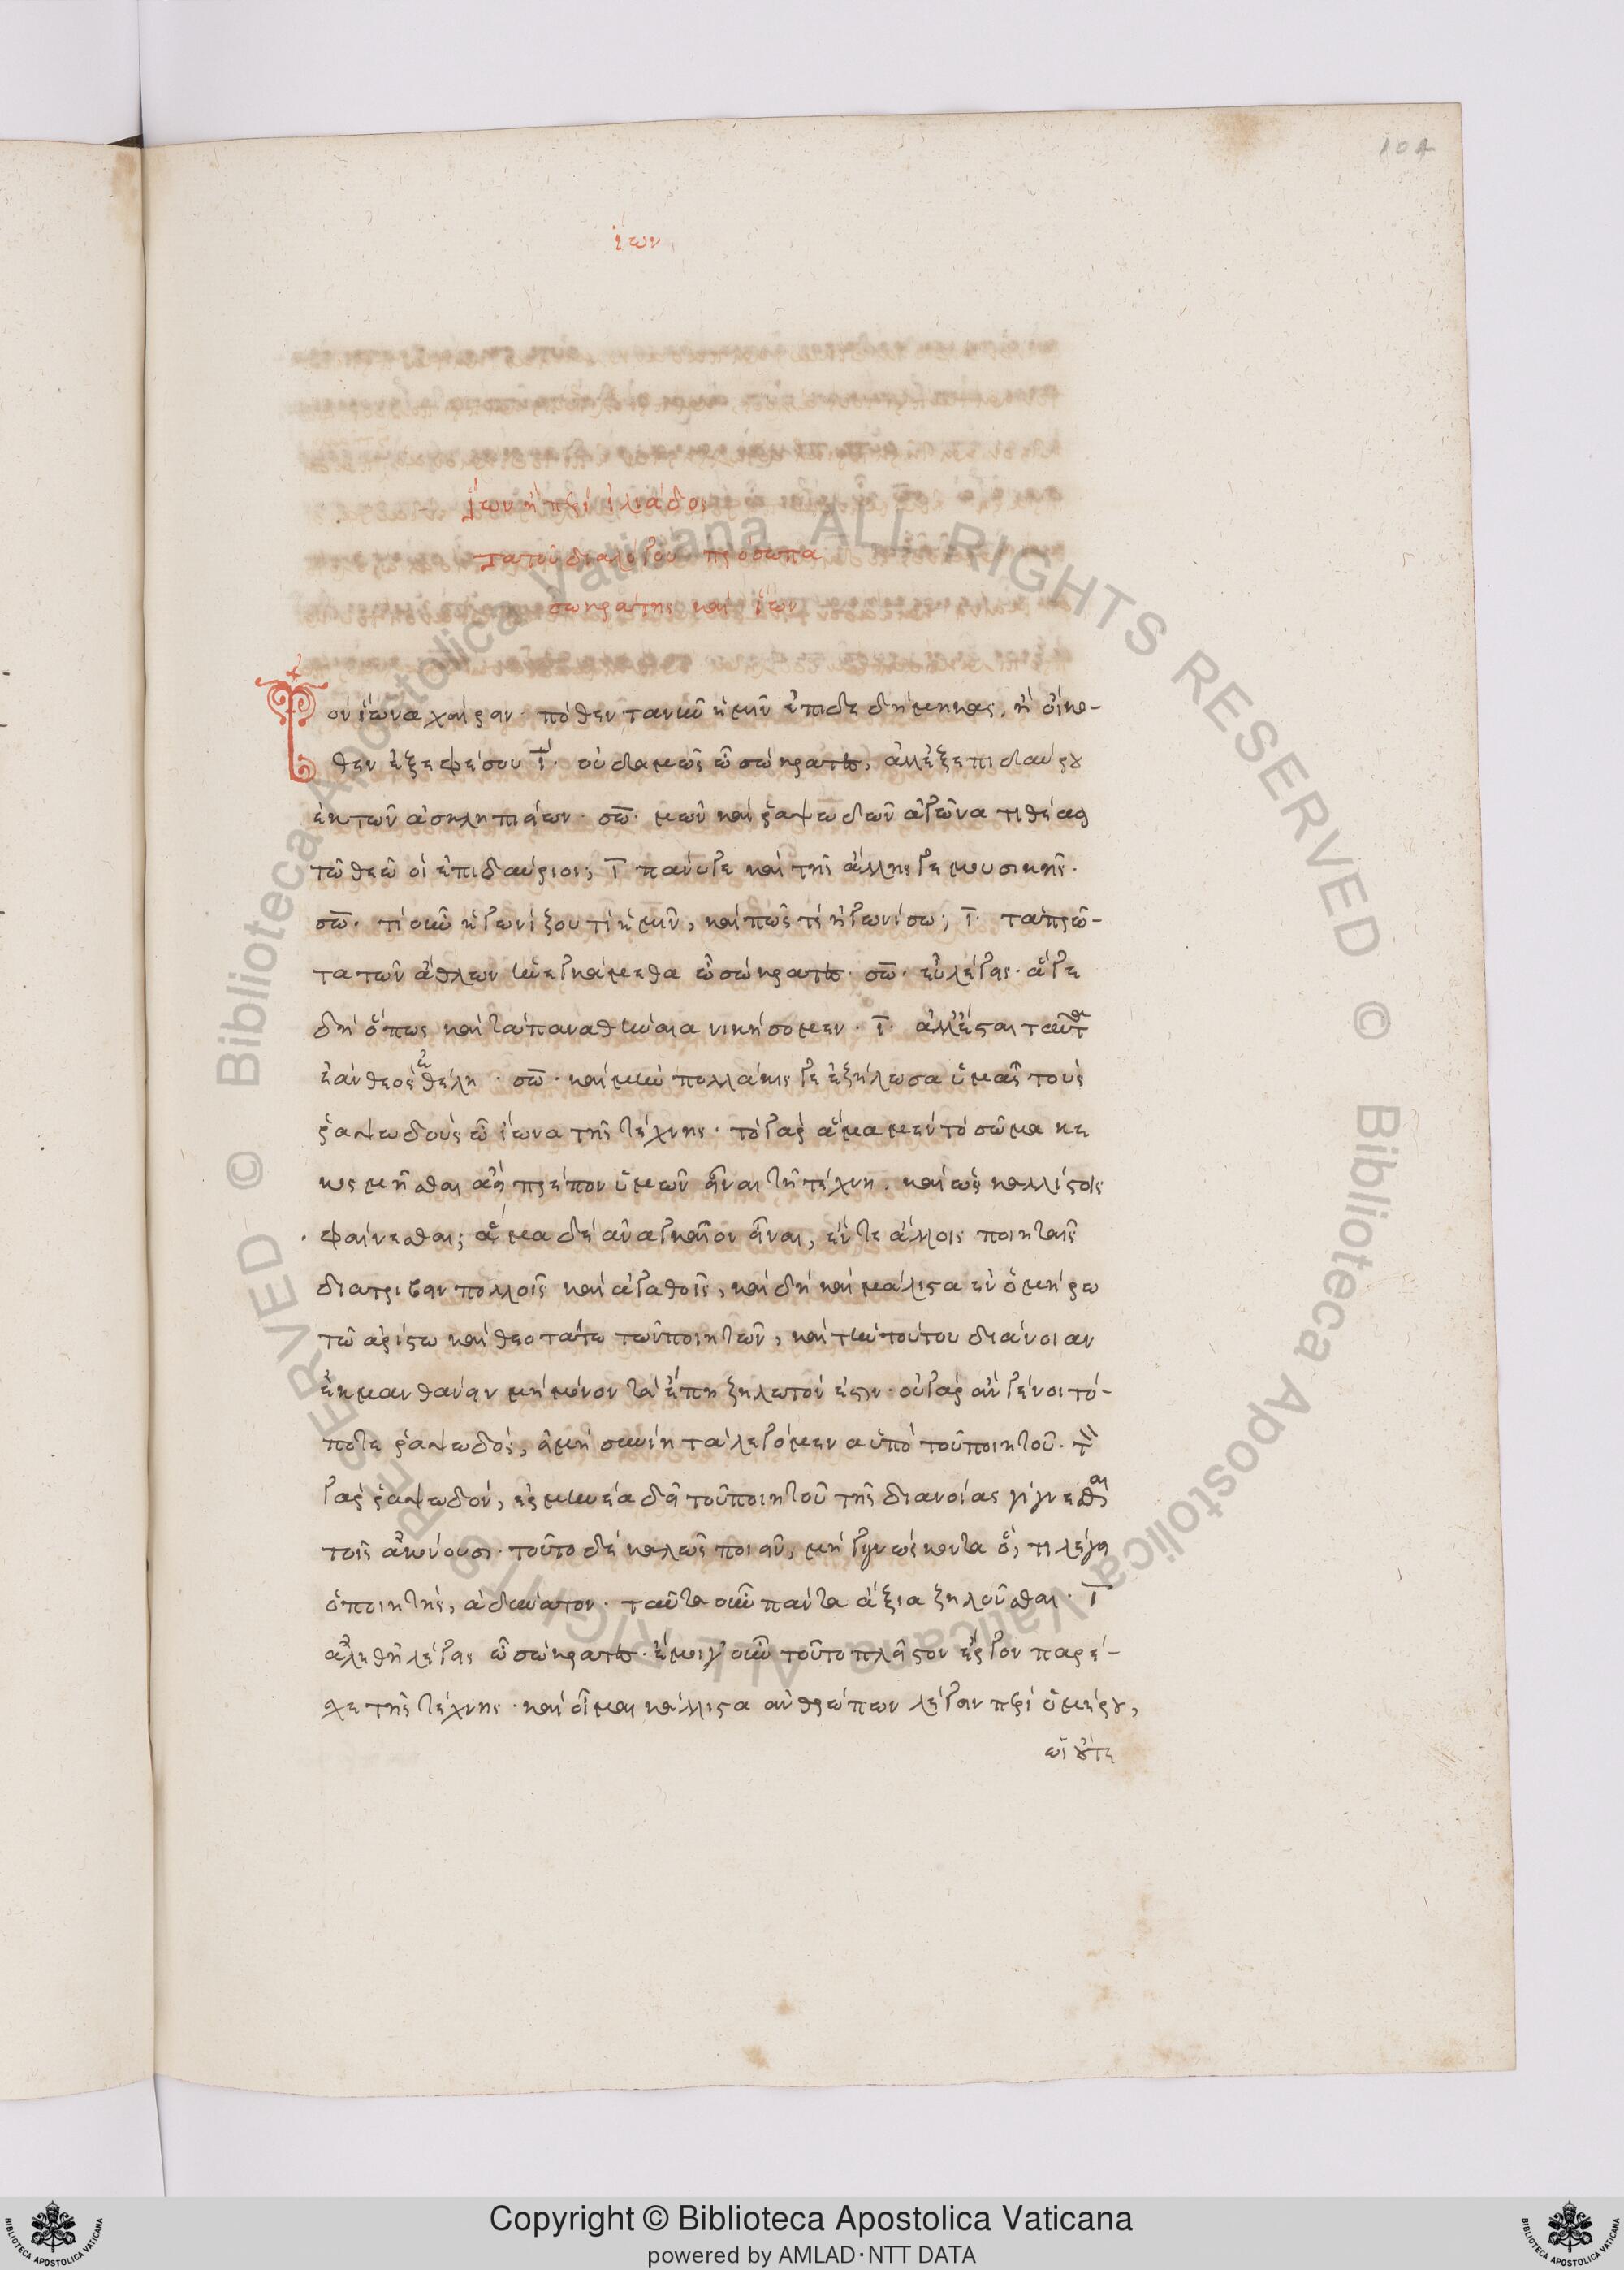 104
ἴων
ἴων ἢ περὶ ἰλιάδος
τὰ τοῦ διαλόγου πρόσωπα
σωκράτης καὶ ἴων
Τὸν ἴωνα χαίρειν· πόθεν τανῦν ἡμῖν ἐπιδεδήμηκας, ἢ οἴκο-
θεν ἐξ ἐφέσου ῑ· οὐδαμῶς ὦ σώκρατες, ἀλλ' ἐξ ἐπιδαύρου
ἐκ τῶν ἀσκληπιείων· σω̄· μῶν καὶ ῥαψωδῶν ἀγῶνα τιθέασι
τῶ θεῶ οἱ ἐπιδαύριοι; ῑ πάνυ γε καὶ τῆς ἄλλης γε μουσικῆς·
σω̄· τί οὖν ἠγωνίζου τί ἡμῖν, καὶ πῶς τί ἠγωνίσω; ῑ· τὰ πρῶ-
τα τῶν ἄθλων ἠνεγκάμεθα ὦ σώκρατες· σω̄· εὖ λέγεις· ἄγε
δὴ ὅπως καὶ τὰ παναθήναια νικήσομεν· ῑ· ἀλλ' ἔσται ταῦτα
ἐὰν θεὸς ἐθέλη· σω̄· καὶ μὴν πολλάκις γε ἐζήλωσα ὑμᾶς τοὺς
ῥαψωδοὺς ὦ ἴωνα τῆς τέχνης· τὸ γὰρ ἅμα μὲν τὸ σῶμα κε
κοσμῆσθαι ἀεὶ πρέπον ὑμῶν εἶναι τῆ τέχνη. καὶ ὡς καλλίστοις
φαίνεσθαι; ἅμα δὲ ἀναγκαῖον εἶναι, ἔν τε ἄλλοις ποιηταῖς
διατρίβειν πολλοῖς καὶ ἀγαθοῖς, καὶ δὴ καὶ μάλιστα ἐν ὁμήρω
τῶ ἀρίστω καὶ θειοτάτω τῶν ποιητῶν, καὶ τὴν τούτου διάνοιαν
ἐκμανθάνειν μὴ μόνον τὰ ἔπη ζηλωτόν ἐστιν· οὐ γὰρ ἂν γένοιτό-
ποτε ῥαψωδός, εἰ μὴ συνίη τὰ λεγόμενα ὑπὸ τοῦ ποιητοῦ· τὸν
γὰρ ῥαψωδόν, ἑρμηνέα δεῖ τοῦ ποιητοῦ τῆς διανοίας γίγνεσθαι
τοῖς ἀκούουσι· τοῦτο δὲ καλῶς ποιεῖν, μὴ γιγνώσκοντα ὅ, τι λέγει
ὁ ποιητής, ἀδύνατον· ταῦτα οὖν πάντα ἄξια ζηλοῦσθαι· ῑ
ἀληθῆ λέγεις ὦ σώκρατες· ἐμοιγ' οὖν τοῦτο πλεῖστον ἔργον παρέ-
σχε τῆς τέχνης· καὶ οἶμαι κάλλιστα ἀνθρώπων λέγειν περὶ ὁμήρου,
ὡς οὔτε
Copyright © Biblioteca Apostolica Vaticana
powered by AMLAD·NTT DATA